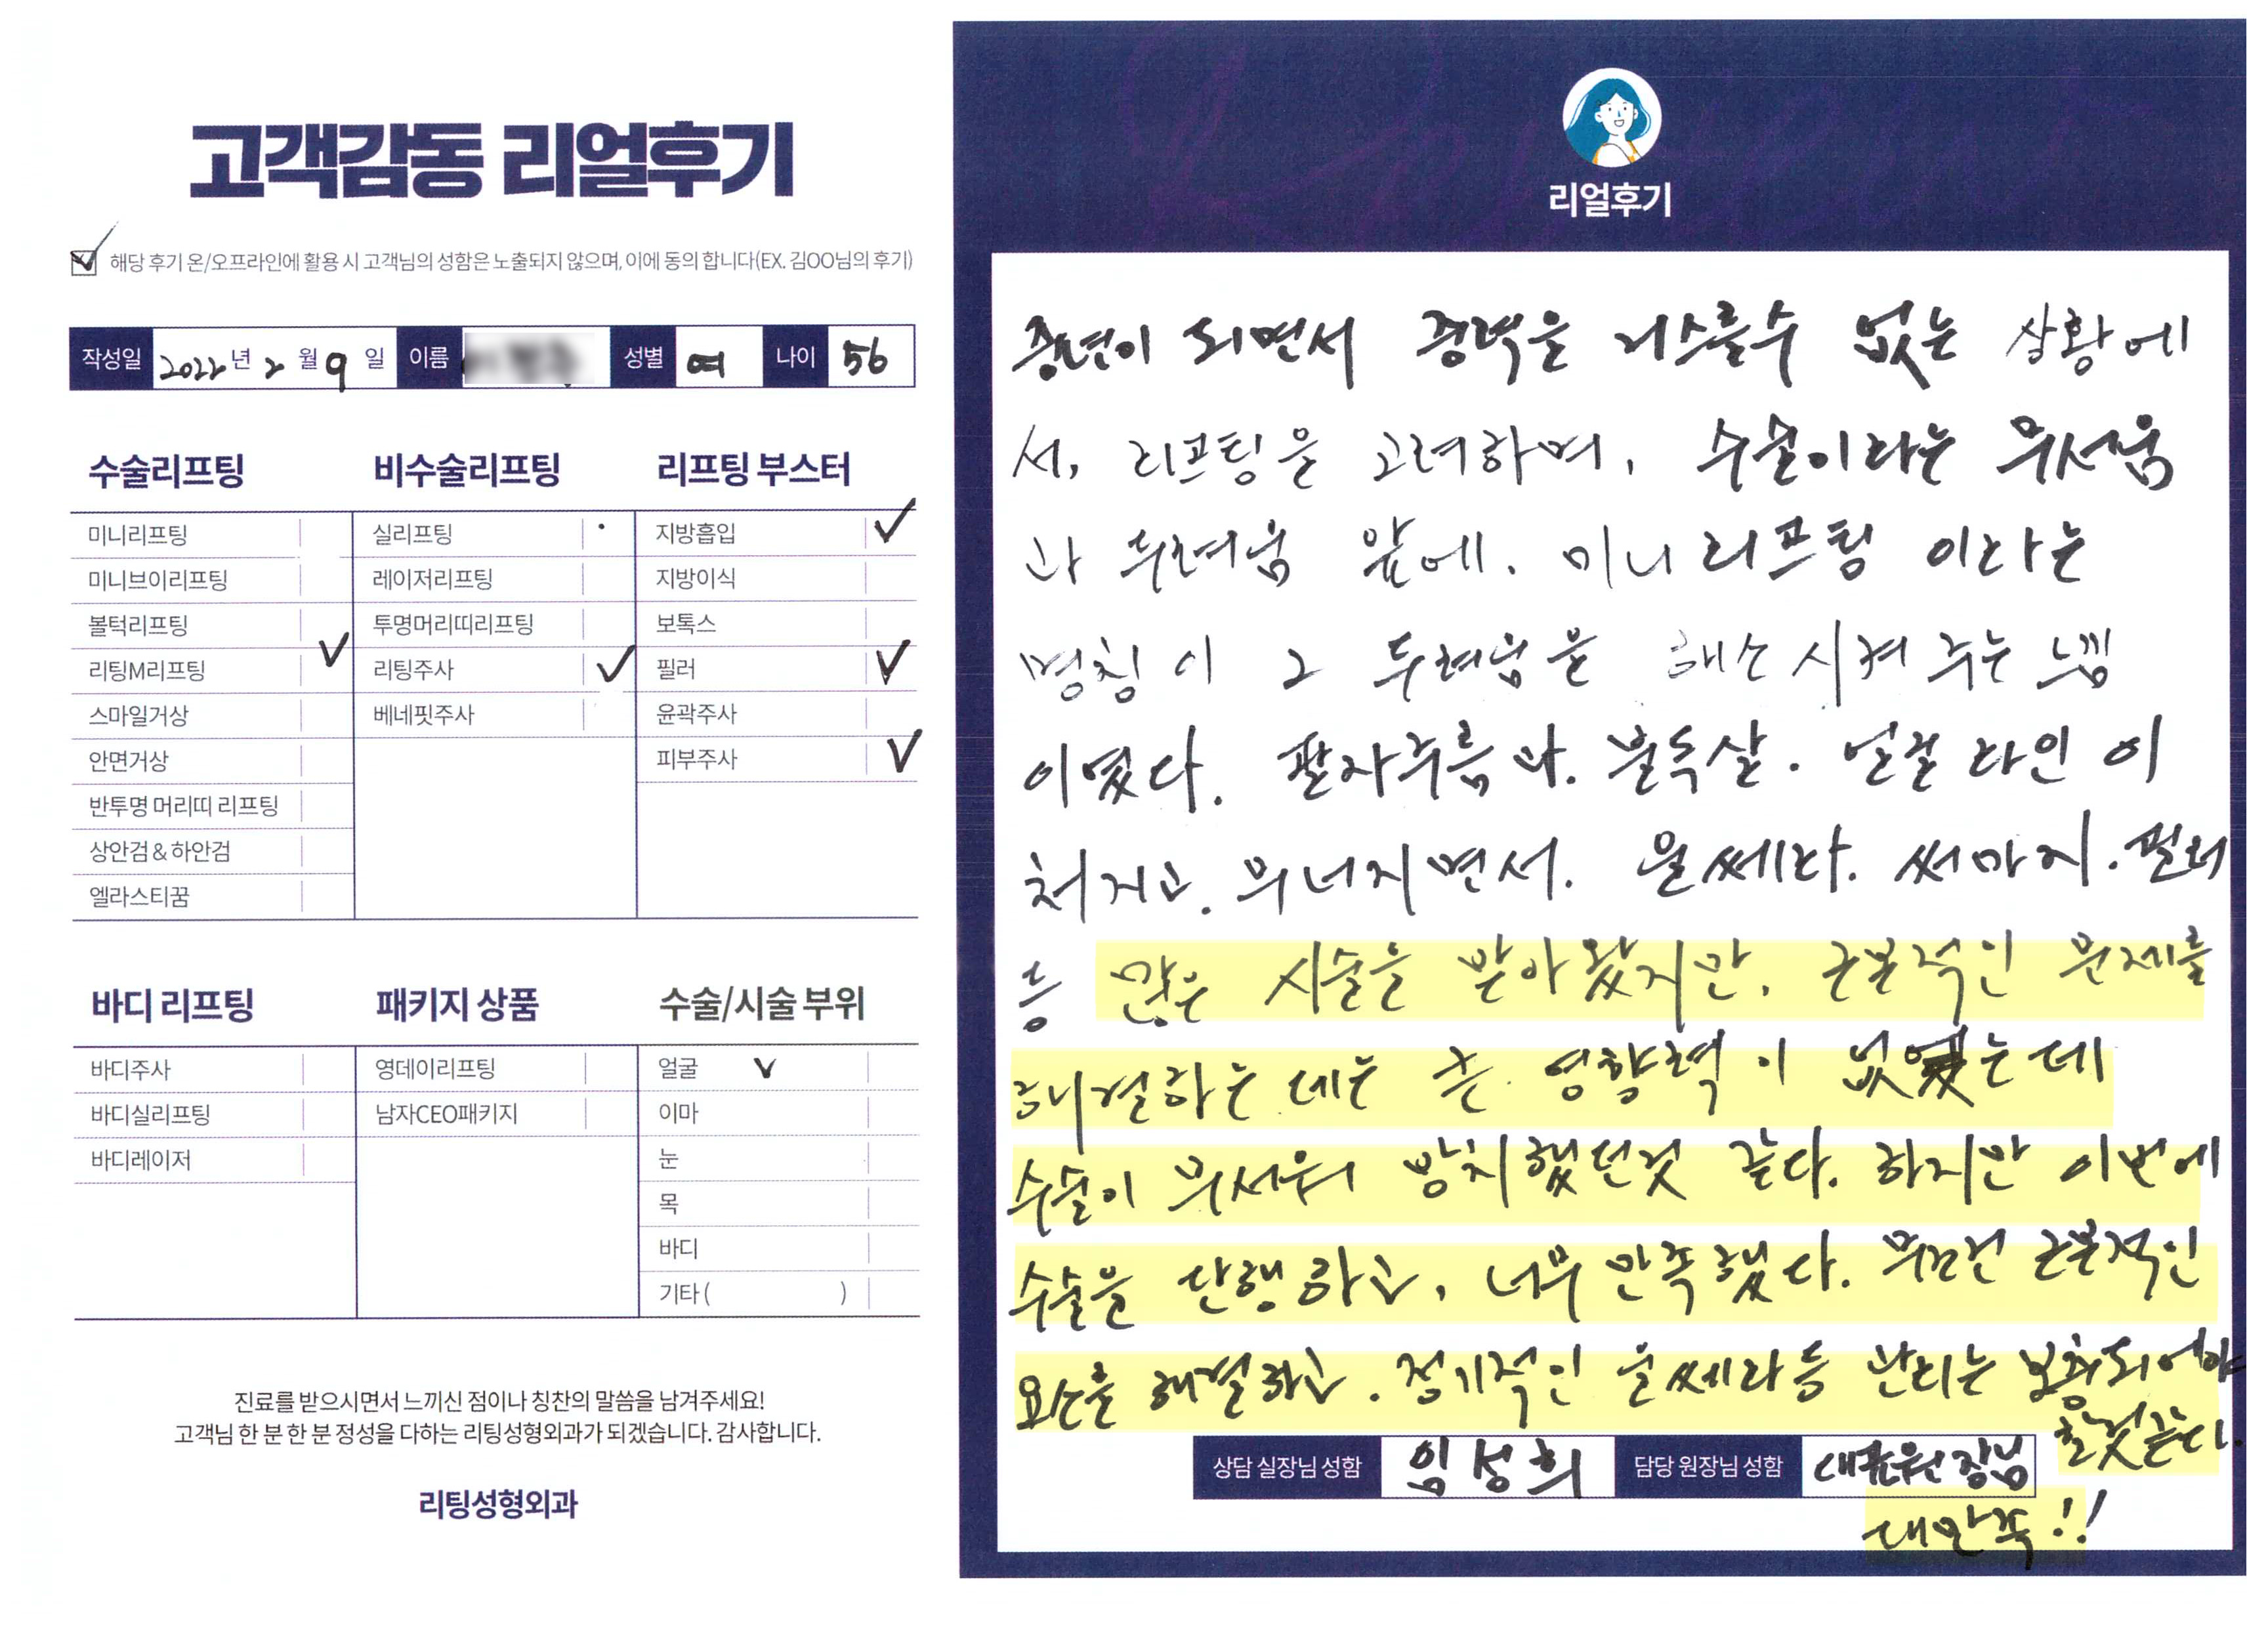 고객감동 리얼후기
해당 후기 온/오프라인에 활용 시 고객님의 성함은 노출되지 않으며, 이에 동의 합니다(EX. 김OO님의 후기)
작성일 2022년 2월 9일 이름 성별 여 나이 56
수술리프팅
미니리프팅
미니브이리프팅
볼턱리프팅
리팅M리프팅
스마일거상
안면거상
반투명 머리띠 리프팅
상안검&하안검
엘라스티꿈
비수술리프팅
실리프팅
레이저리프팅
투명머리띠리프팅
리팅주사
베네핏주사
리프팅 부스터
지방흡입
지방이식
보톡스
필러
윤곽주사
피부주사
바디 리프팅
바디주사
바디실리프팅
바디레이저
패키지 상품
영데이리프팅
남자CEO패키지
수술/시술 부위
얼굴
이마
눈
목
바디
기타( )
진료를 받으시면서 느끼신 점이나 칭찬의 말씀을 남겨주세요!
고객님 한 분 한 분 정성을 다하는 리팅성형외과가 되겠습니다. 감사합니다.
리팅성형외과
리얼후기
중년이 되면서 중력을 거스를수 없는 상황에
서, 리프팅을 고려하며, 수술이라는 무서움
과 두려움 앞에. 미니리프팅 이라는
명칭이 그 두려움을 해소시켜 주는 느낌
이었다. 팔자주름과. 불독살. 얼굴라인이
처지고. 무너지면서. 울쎄라. 써마지. 필러
등 많은 시술을 받아왔지만, 근본적인 문제를
해결하는데는 큰 영향력이 없었는데
수술이 무서워 방치했던것 같다. 하지만 이번에
수술을 단행하고, 너무 만족했다. 무조건 근본적인
요소을 해결하고. 정기적인 울쎄라등 관리는 보충되어야
할것같다.
상담 실장님 성함 임성희 담당 원장님 성함 대표원장님
대만족!!